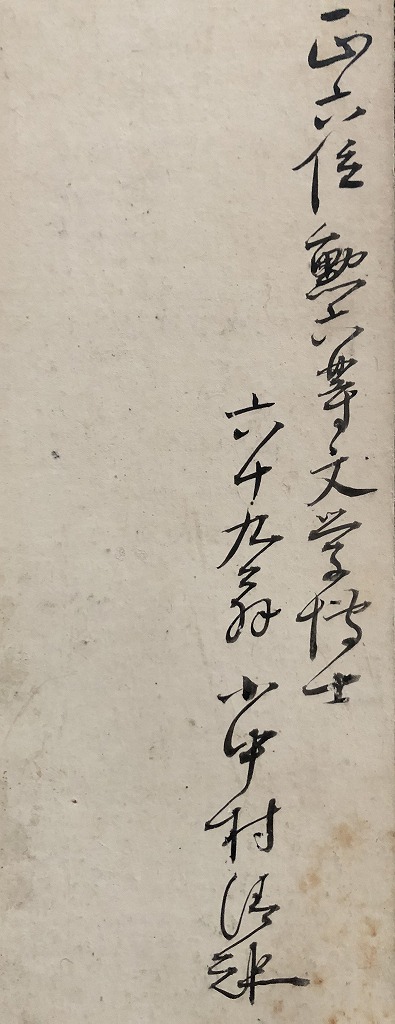 正六位勲六等文学博士
六十九翁 小中村清矩